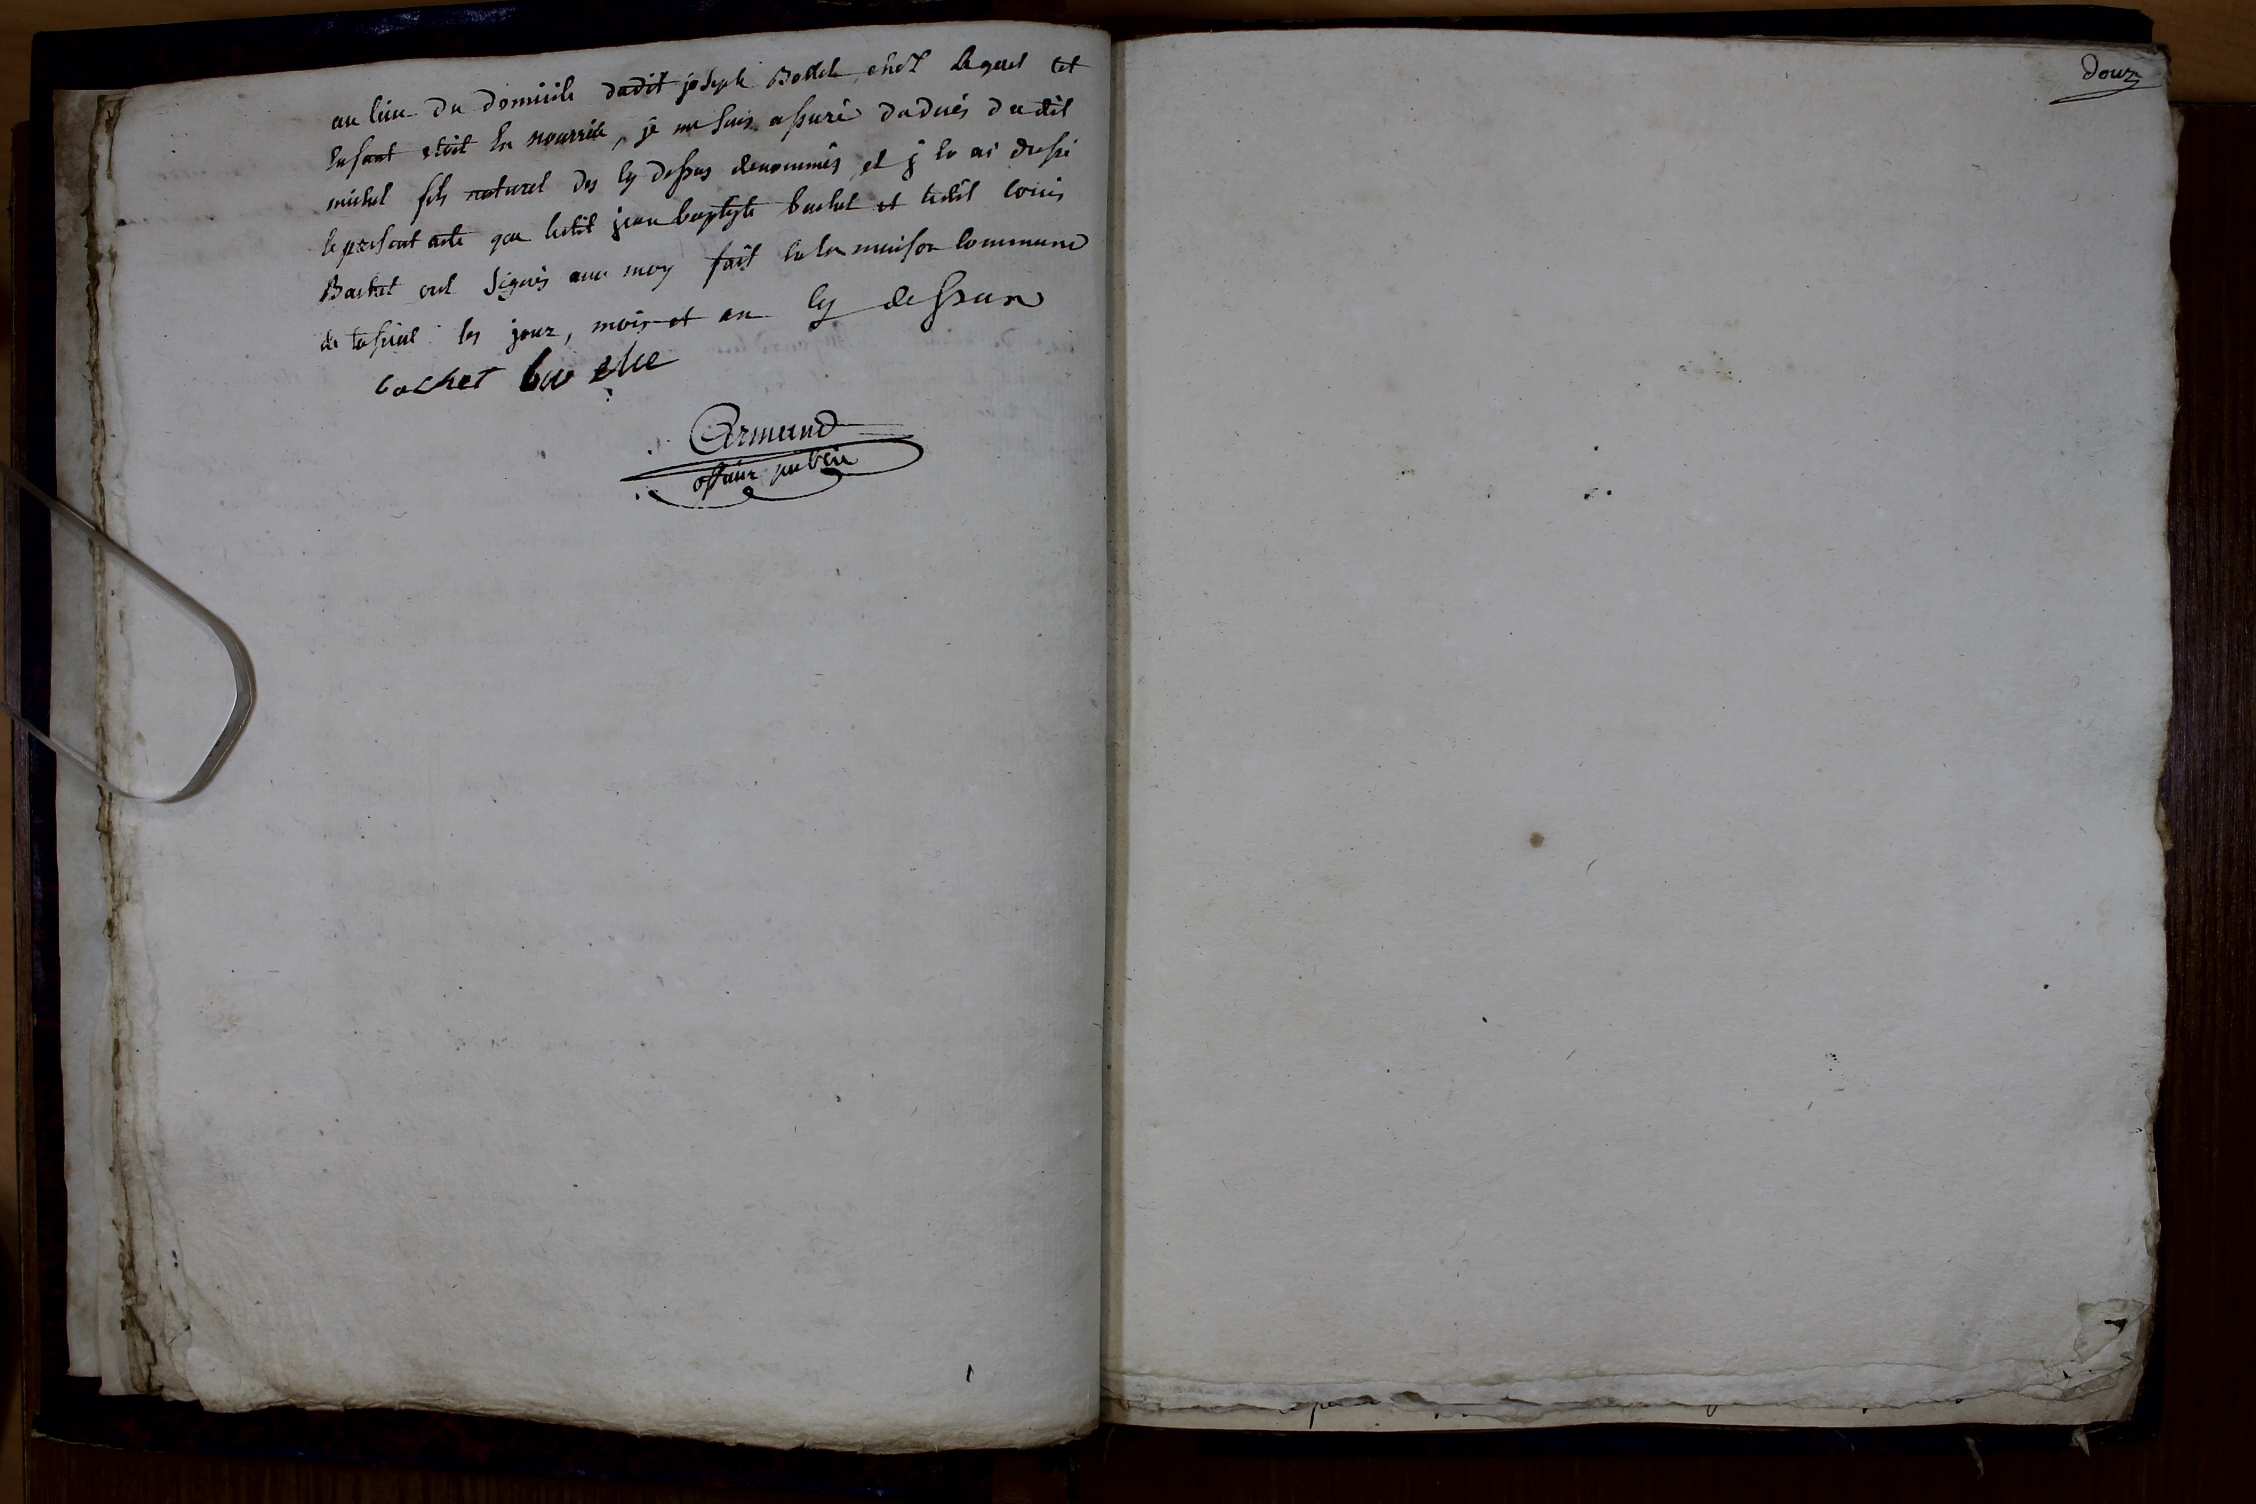 au lieu du domicile dudit joseph chez lequel cet
enfant etoit en nourrice, je me suis assuré du deces du dit
michel fils naturel des cy dessus denommés, et j en ai dressé
le present acte que ledit jean baptiste bachet et ledit louis
Bachet ont signés avec moy fait en la maison commune
de les jour, mois et an cy dessus
bachet
Armand
officier public
douze